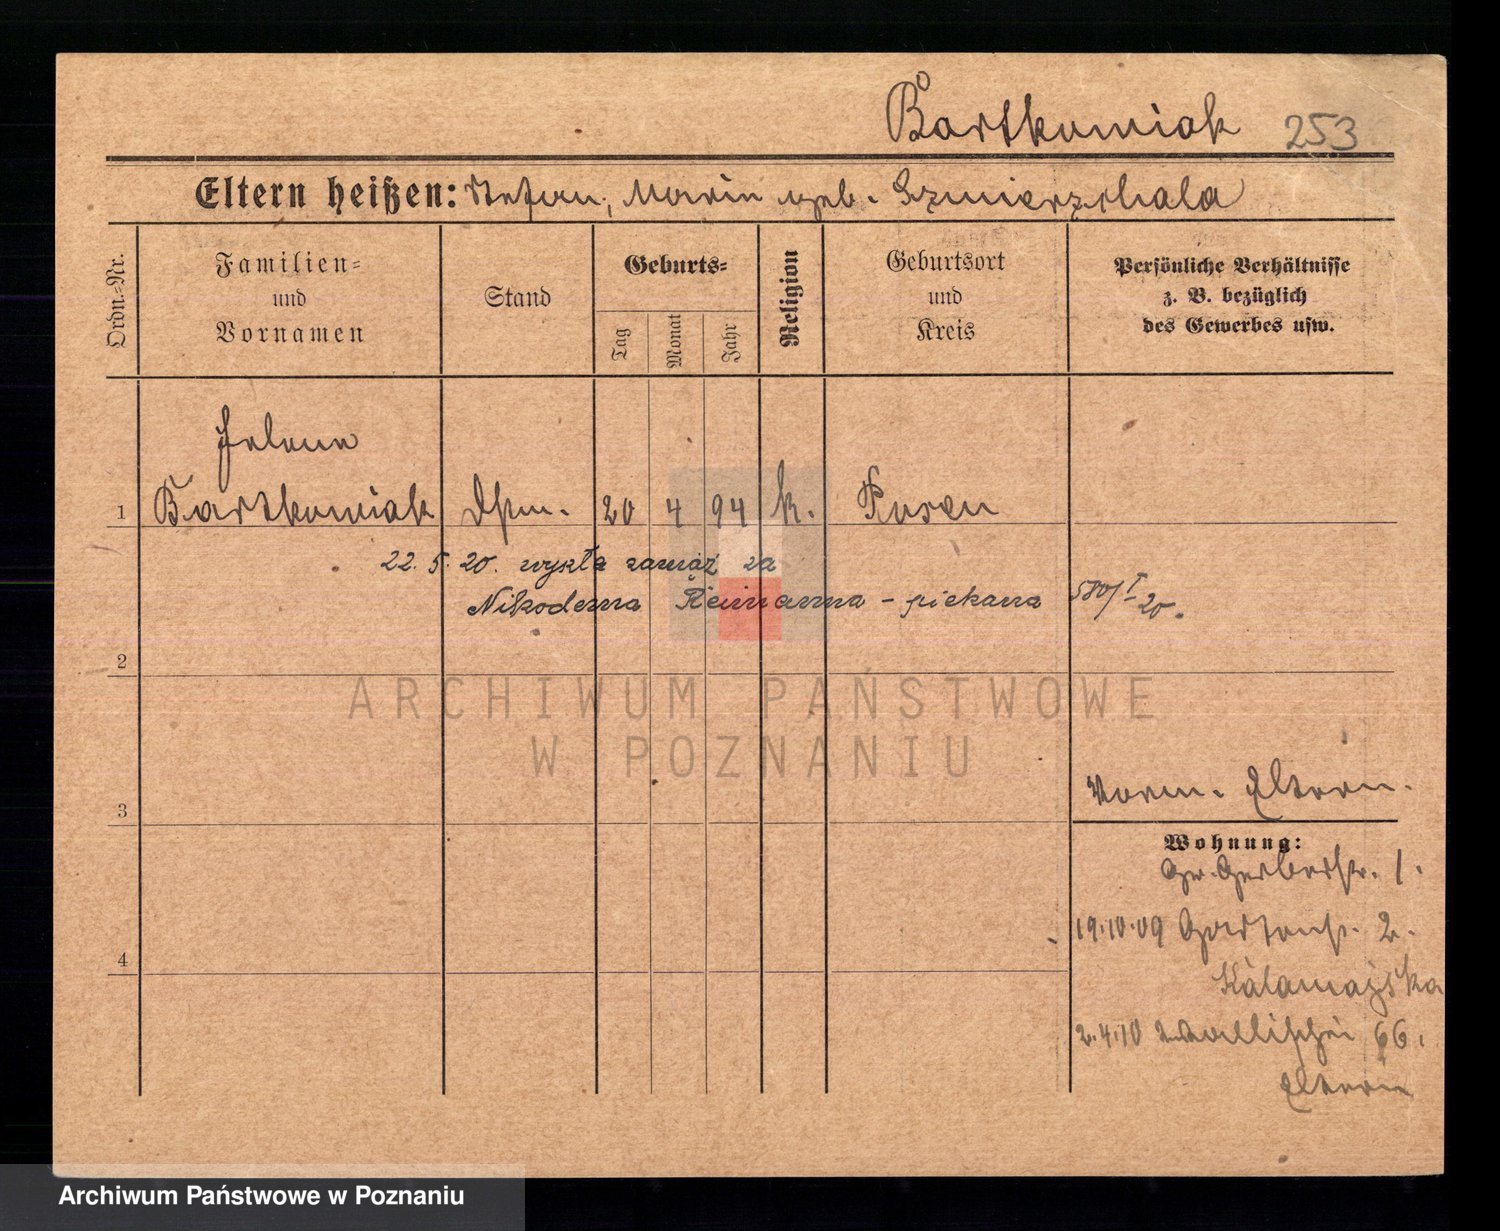 Bartkowiak 253
Eltern heißen: Stefan, Marie geb. Szmierzchala
Ordn.-Nr.
Familien-
und
Vornamen
Stand
Geburts-
Tag
Monat
Jahr
Religion
Geburtsort
und
Kreis
Persönliche Verhältnisse
z. B. bezüglich
des Gewerbes usw.
Helene
1 Bartkowiak 20 4 94 k. Posen
22. 5. 20. wyszła zamąż za
Nikodema Reimanna - piekarza 580/I 20.
2
ARCHIWUM PAŃSTWOWE
W POZNANIU
3
Vorm. Eltern.
Wohnung:
Gr. Gerberstr. 1.
19.10.09 Gartenstr. 2.
4
Kałamajska
2.4.10 Wallischei 66.
Eltern
Archiwum Państwowe w Poznaniu